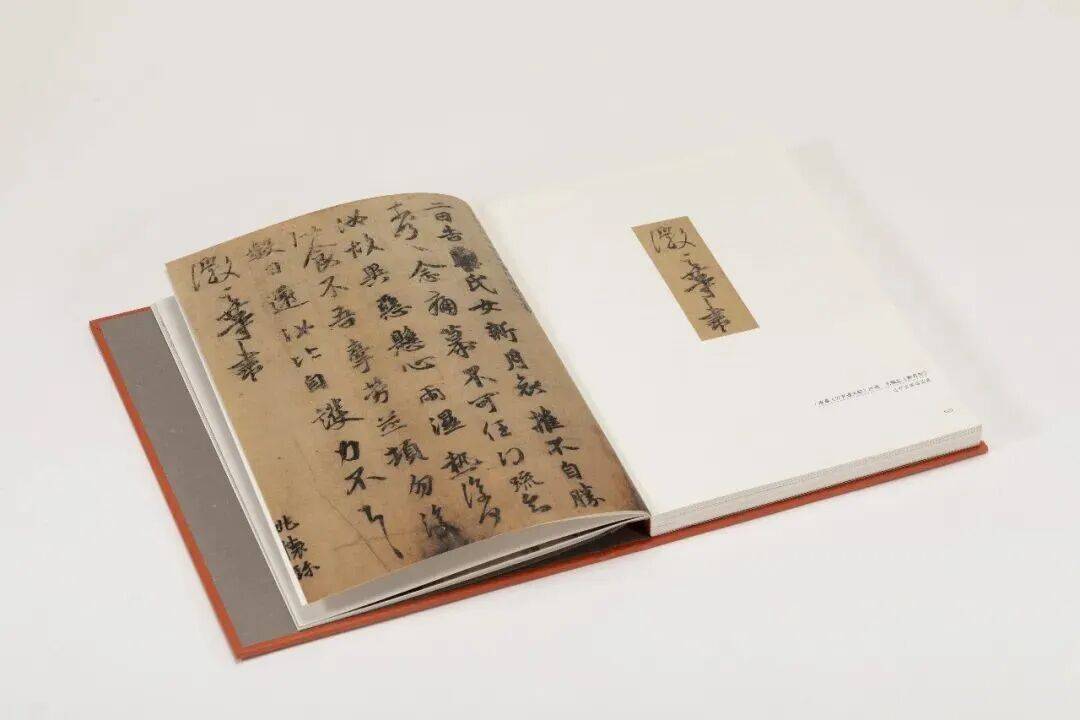 二日告氏女新月哀摧不自勝
奈何奈何念痛慕不可任得疏知
汝故異惡懸心雨濕熱復何
似食不吾牽勞並頓勿復
數日還汝比自護力不具
徽之等書
姚懷珍
徽之等書